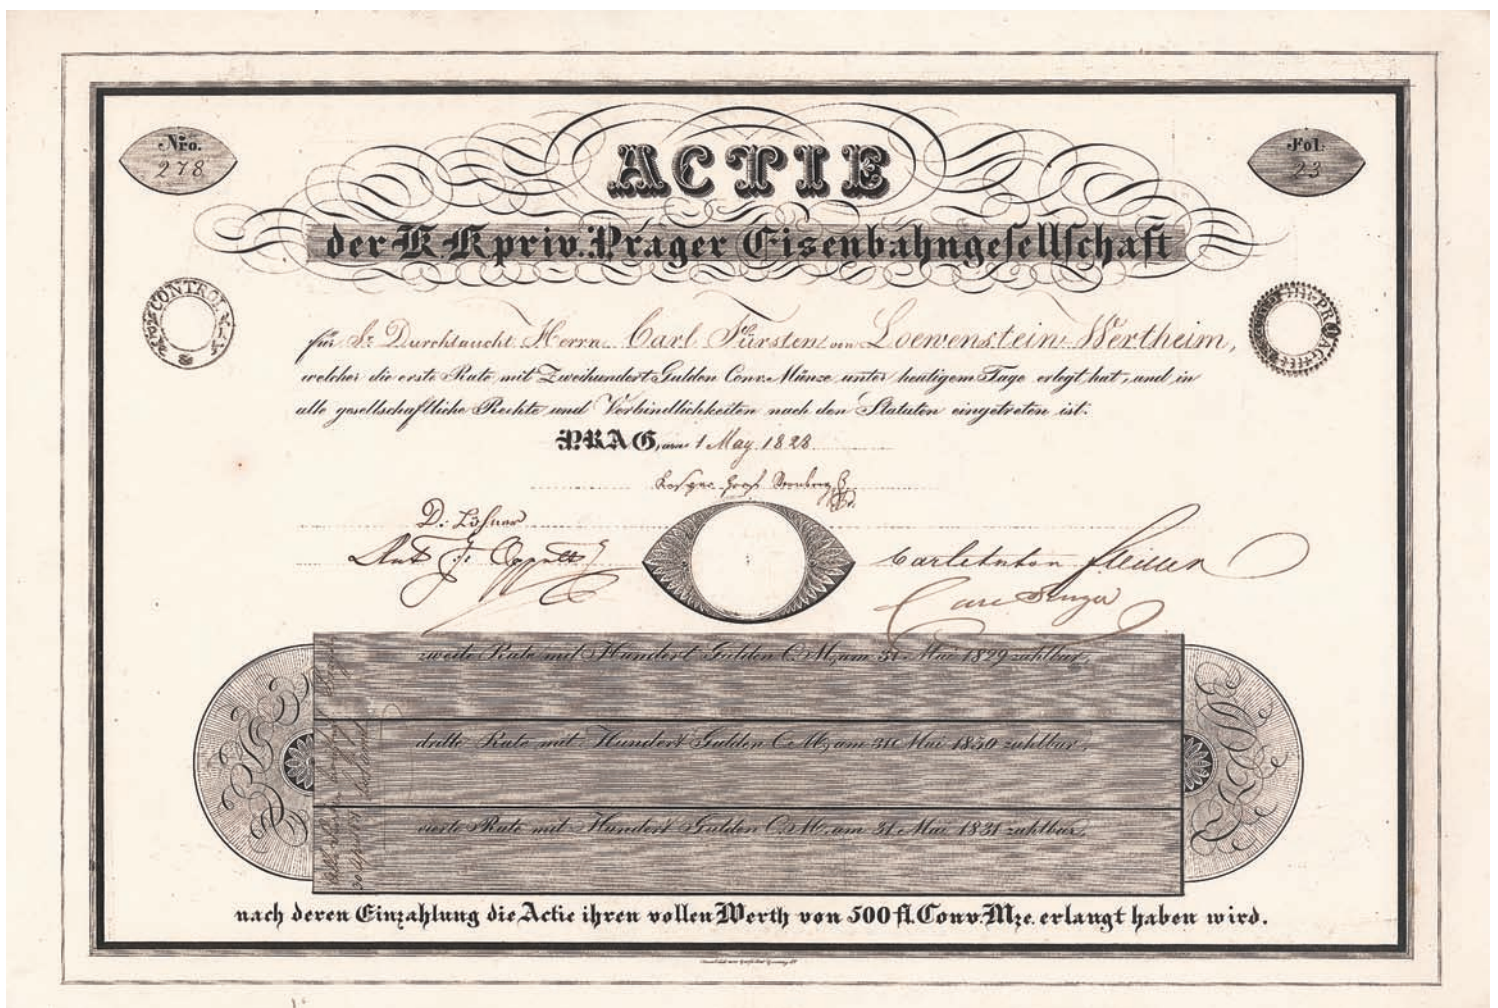 Nro.
278
Fol:
23
ACTIE
der K K priv. Prager Eisenbahngesellschaft
CONTROL
PRAG
für Sr Durchlaucht Herrn Carl Fürsten von Loewenstein-Wertheim,
welcher die erste Rate mit Zweihundert Gulden Conv. Münze unter heutigem Tage erlegt hat, und in
alle gesellschaftliche Rechte und Verbindlichkeiten nach den Statuten eingetreten ist.
PRAG, am 1 May 1828
zweite Rate mit Hundert Gulden C. M. am 31 Mai 1829 zahlbar,
dritte Rate mit Hundert Gulden C. M. am 31 Mai 1830 zahlbar,
vierte Rate mit Hundert Gulden C. M. am 31. Mai 1831 zahlbar,
nach deren Einzahlung die Actie ihren vollen Werth von 500 fl. Conv. Mze. erlangt haben wird.